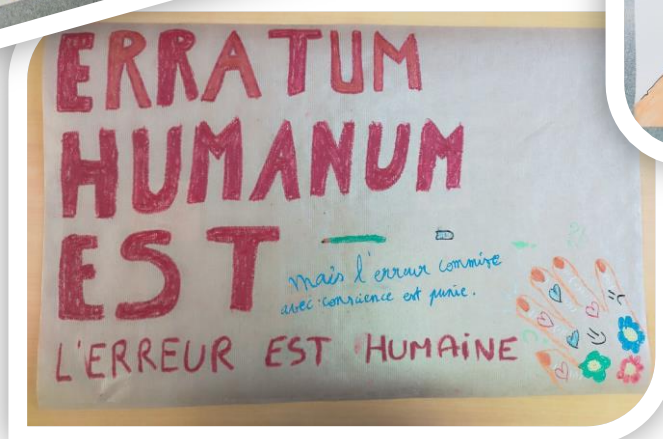 ERRATUM
HUMANUM
EST
mais l'erreur commise
avec conscience est punie.
L'ERREUR EST HUMAINE